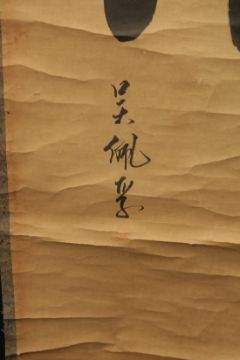 吴佩孚